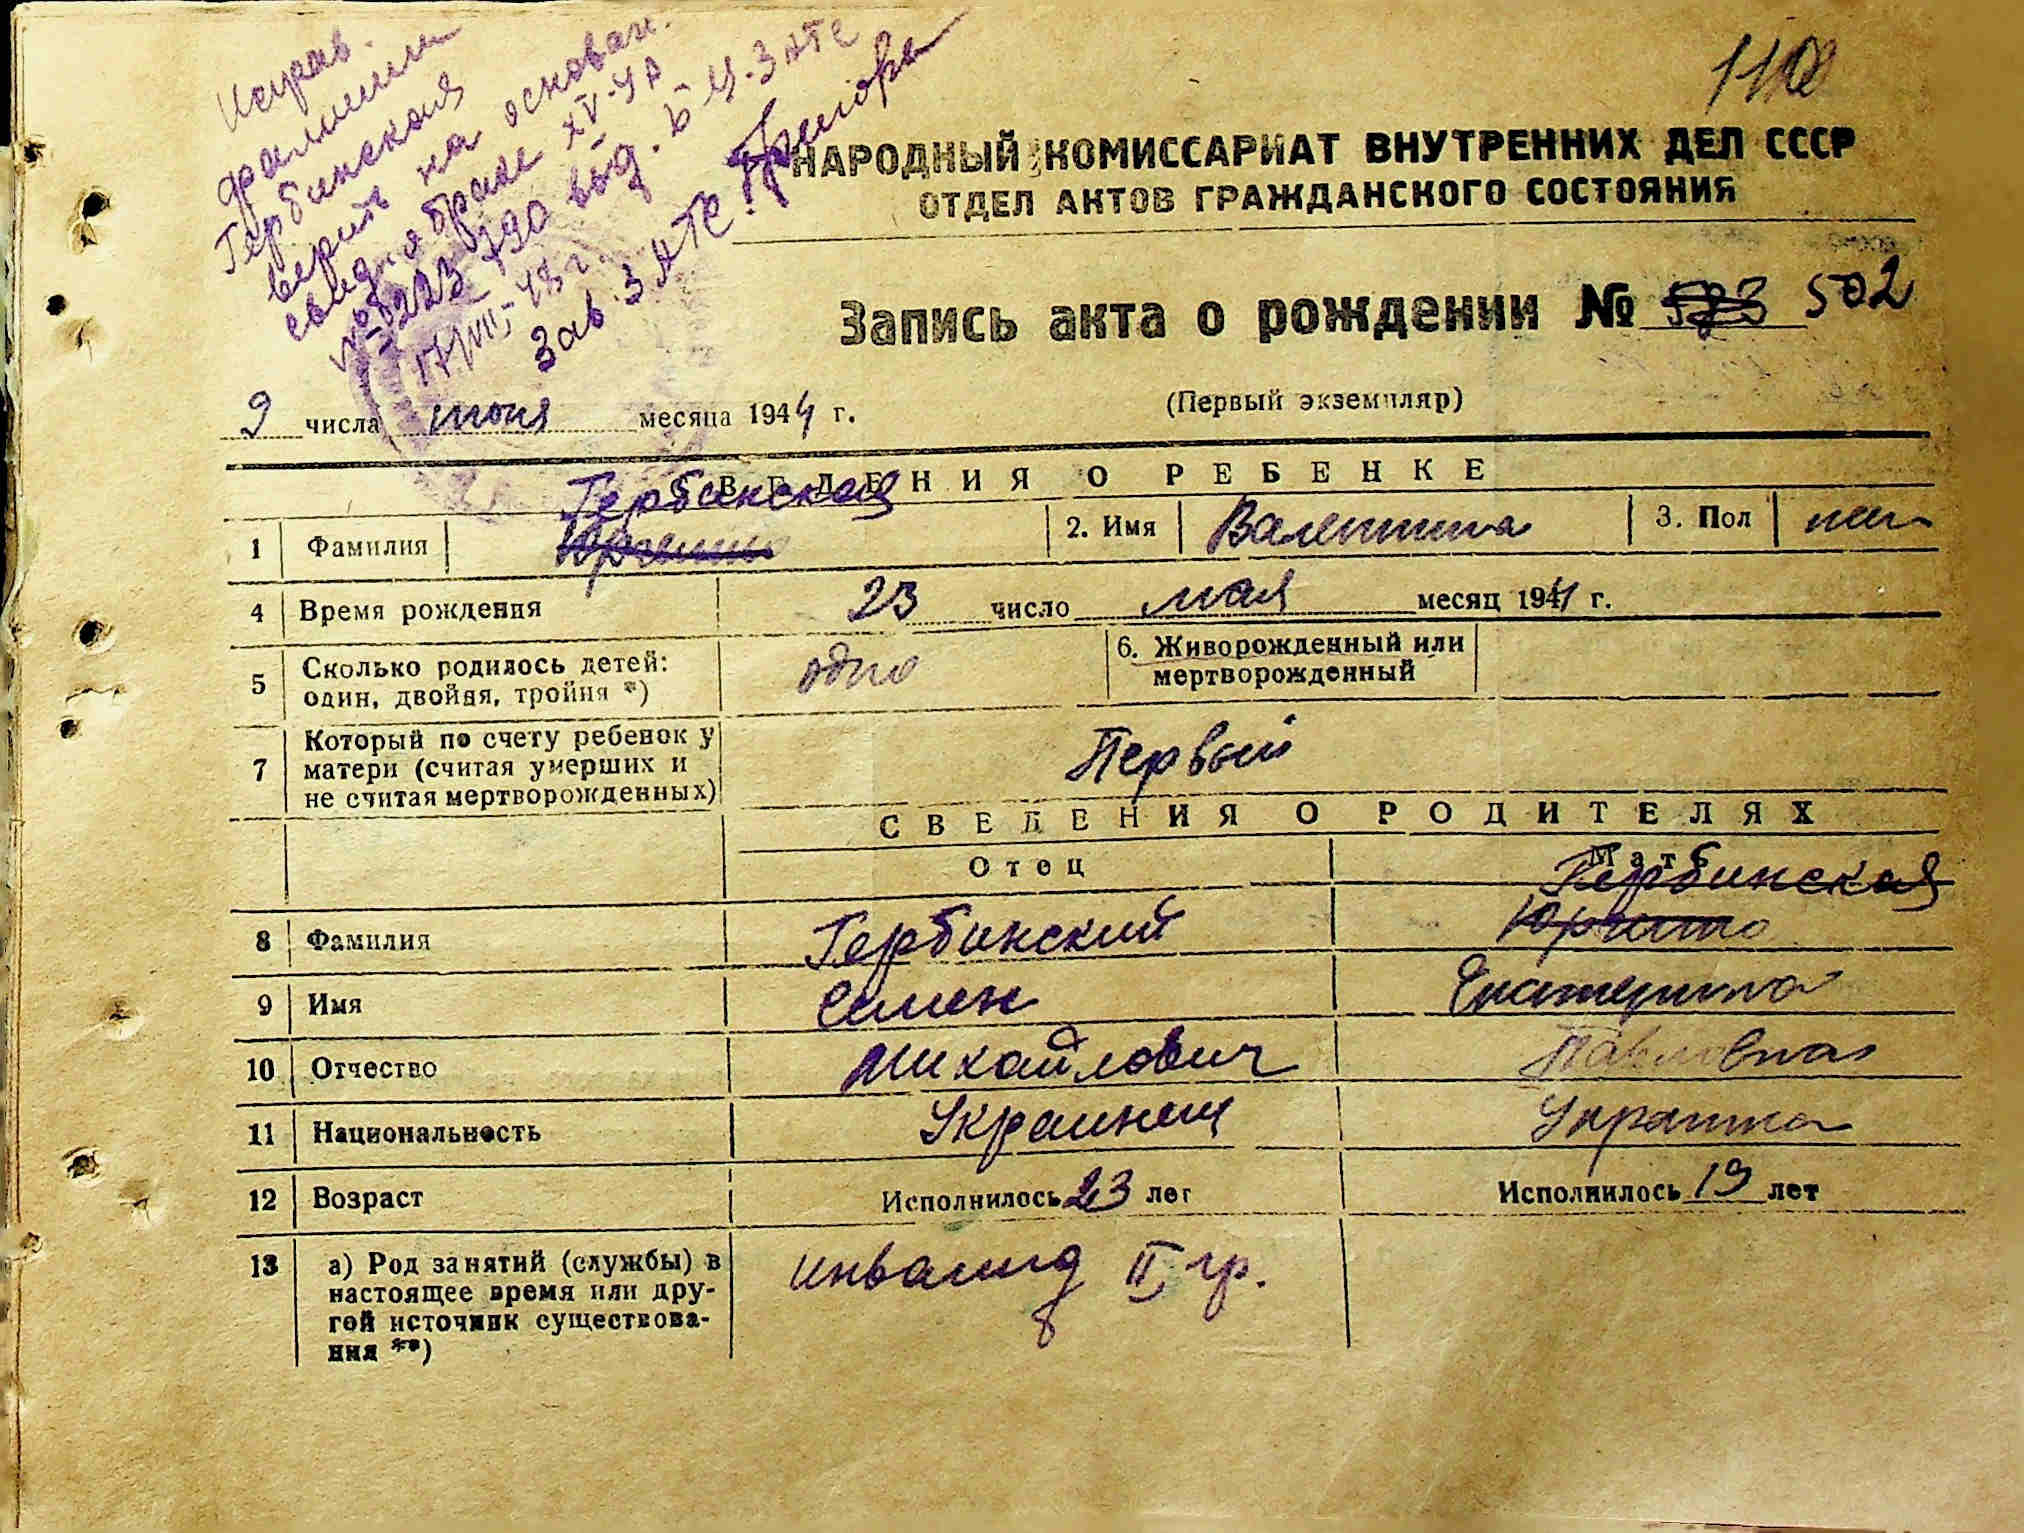 Исправ.
фамилии
Гербинская
верить на основан.
свид. о браке XV-УР
№ 223790 выд. Б-Ц-ЗАГС
17/VII-48 г.
Зав. ЗАГС:
110
НАРОДНЫЙ КОМИССАРИАТ ВНУТРЕННИХ ДЕЛ СССР
ОТДЕЛ АКТОВ ГРАЖДАНСКОГО СОСТОЯНИЯ
Запись акта о рождении № 523 502
9 числа июня месяца 1944 г.
(Первый экземпляр)
СВЕДЕНИЯ О РЕБЕНКЕ
Гербинская
1 Фамилия Юрченко 2. Имя Валентина 3. Пол жен
4 Время рождения 23 число мая месяц 1944 г.
5 Сколько родилось детей: один, двойня, тройня *) одно 6. Живорожденный или мертворожденный
7 Который по счету ребенок у матери (считая умерших и не считая мертворожденных) Первый
СВЕДЕНИЯ О РОДИТЕЛЯХ
Отец Мать
Гербинская
8 Фамилия Гербинский Юрченко
9 Имя Семен Екатерина
10 Отчество Михайлович Павловна
11 Национальность Украинец Украинка
12 Возраст Исполнилось 23 лет Исполнилось 19 лет
13 а) Род занятий (службы) в настоящее время или другой источник существования **) инвалид II гр.